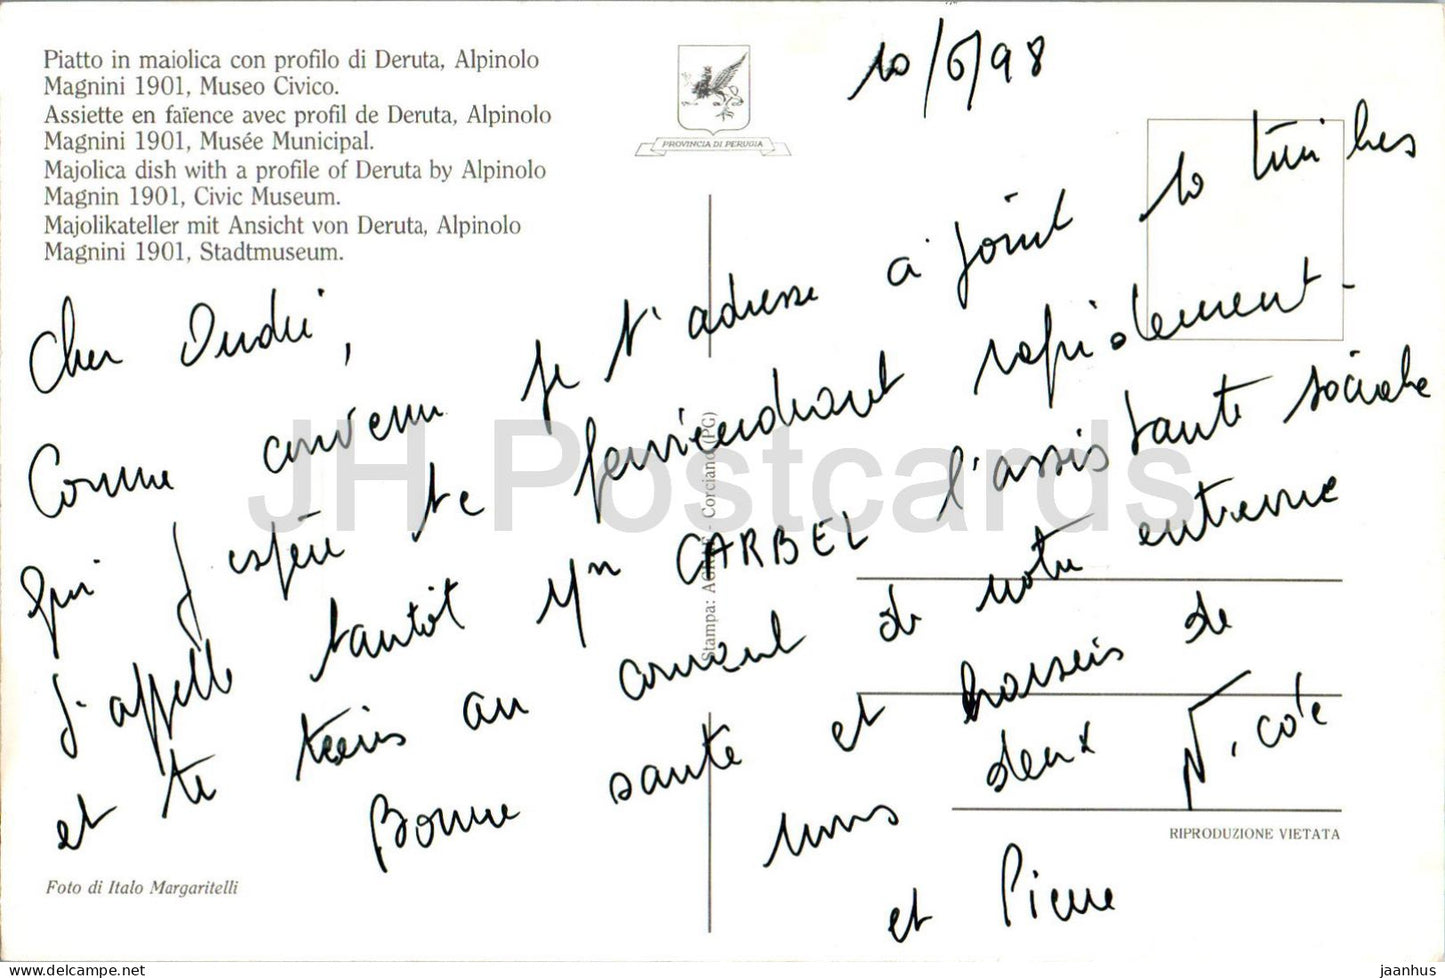 Piatto in maiolica con profilo di Deruta, Alpinolo
Magnini 1901, Museo Civico.
Assiette en faïence avec profil de Deruta, Alpinolo
Magnini 1901, Musée Municipal.
Majolica dish with a profile of Deruta by Alpinolo
Magnin 1901, Civic Museum.
Majolikateller mit Ansicht von Deruta, Alpinolo
Magnini 1901, Stadtmuseum.
PROVINCIA DI PERUGIA
10/6/98
Cher
Comme convenu je t'adresse ci joint 10 timbres
qui j'espère te parviendront rapidement -
J'appelle tantôt Mme CARBEL l'assistante sociale
et te tiens au courant de notre entrevue
Bonne santé et baisers de
nous deux Nicole
et Pierre
Stampa: - Corciano (PG)
RIPRODUZIONE VIETATA
Foto di Italo Margaritelli
JH Postcards
jaanhus.com
jaanhus